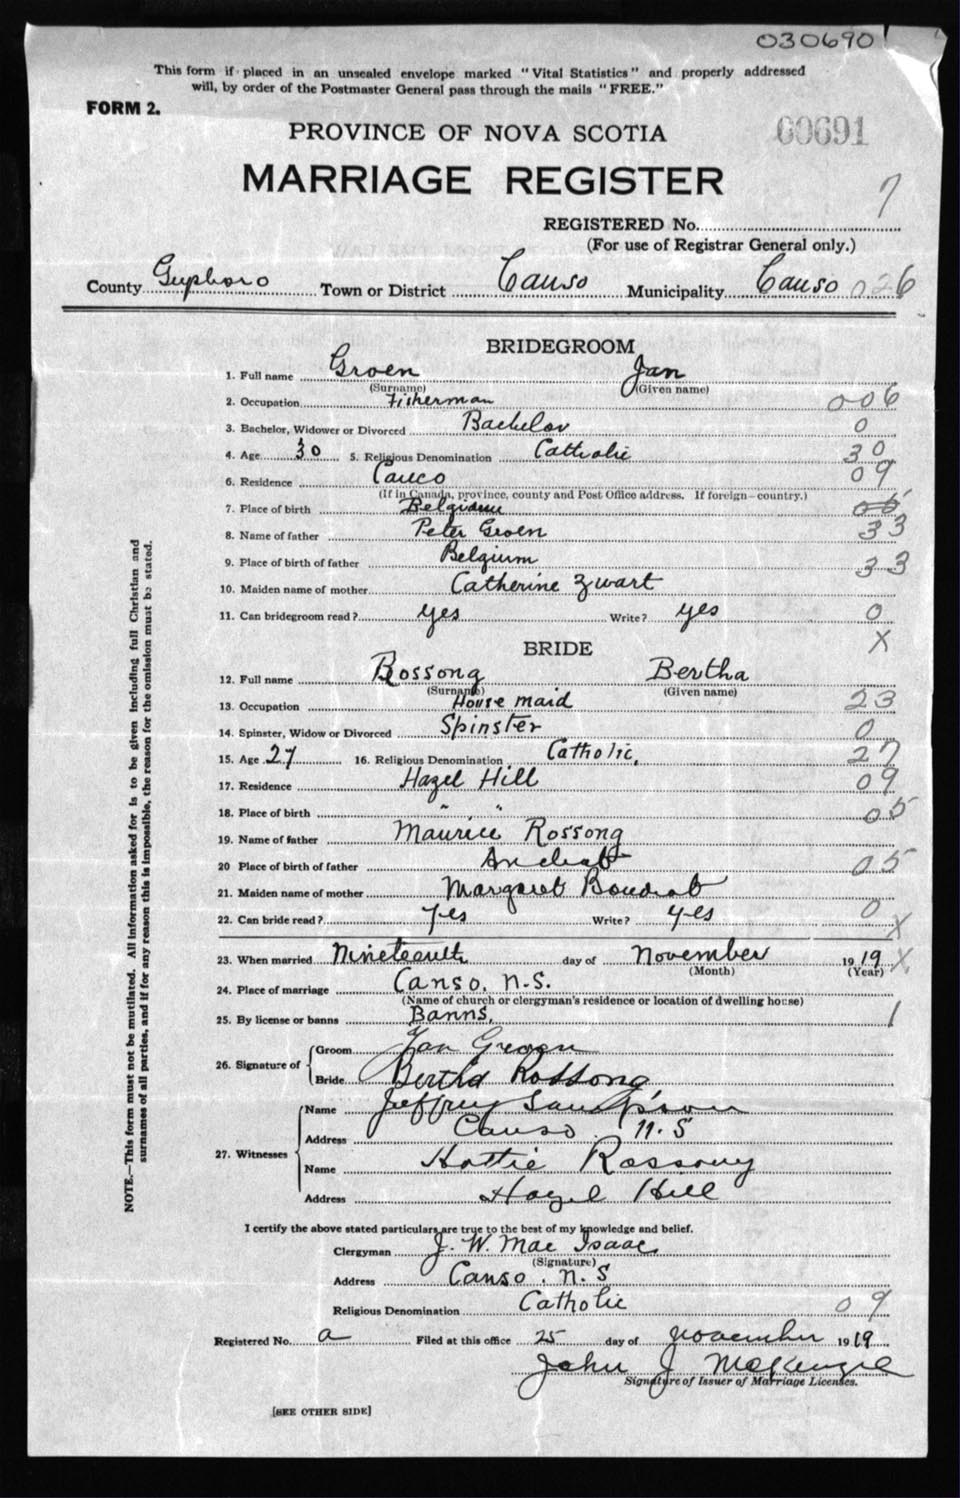 030690
This form if placed in an unsealed envelope marked "Vital Statistics" and properly addressed
will, by order of the Postmaster General pass through the mails "FREE."
FORM 2.
PROVINCE OF NOVA SCOTIA 60691
MARRIAGE REGISTER
7
REGISTERED No.
(For use of Registrar General only.)
County Guysboro Town or District Canso Municipality Canso 026
BRIDEGROOM
1. Full name Groen Jan
(Surname) (Given name)
2. Occupation Fisherman 006
3. Bachelor, Widower or Divorced Bachelor 0
4. Age 30 5. Religious Denomination Catholic 30
6. Residence Canco 09
(If in Canada, province, county and Post Office address. If foreign—country.)
7. Place of birth Belgium 05
8. Name of father Peter Groen 33
9. Place of birth of father Belgium 33
10. Maiden name of mother Catherine Zwart
11. Can bridegroom read? yes Write? yes 0
BRIDE X
12. Full name Rossong Bertha
(Surname) (Given name)
13. Occupation House maid 23
14. Spinster, Widow or Divorced Spinster 0
15. Age 27 16. Religious Denomination Catholic, 27
17. Residence Hazel Hill 09
18. Place of birth " " 05
19. Name of father Maurice Rossong
20 Place of birth of father Arichat 05
21. Maiden name of mother Margaret Boudrot
22. Can bride read? yes Write? yes 0 X
23. When married Nineteenth day of November 1919 X
(Month) (Year)
24. Place of marriage Canso, N.S.
(Name of church or clergyman's residence or location of dwelling house)
25. By license or banns Banns, 1
26. Signature of Groom Jan Groen
Bride Bertha Rossong
27. Witnesses Name Jeffrey Sampson
Address Canso N.S
Name Hattie Rossong
Address Hazel Hill
I certify the above stated particulars are true to the best of my knowledge and belief.
Clergyman J. W. Mac Isaac
(Signature)
Address Canso, N.S
Religious Denomination Catholic 09
Registered No. a Filed at this office 25 day of November 1919
John J McKenzie
Signature of Issuer of Marriage Licenses.
[SEE OTHER SIDE]
NOTE.—This form must not be mutilated. All information asked for is to be given including full Christian and
surnames of all parties, and if for any reason this is impossible, the reason for the omission must be stated.